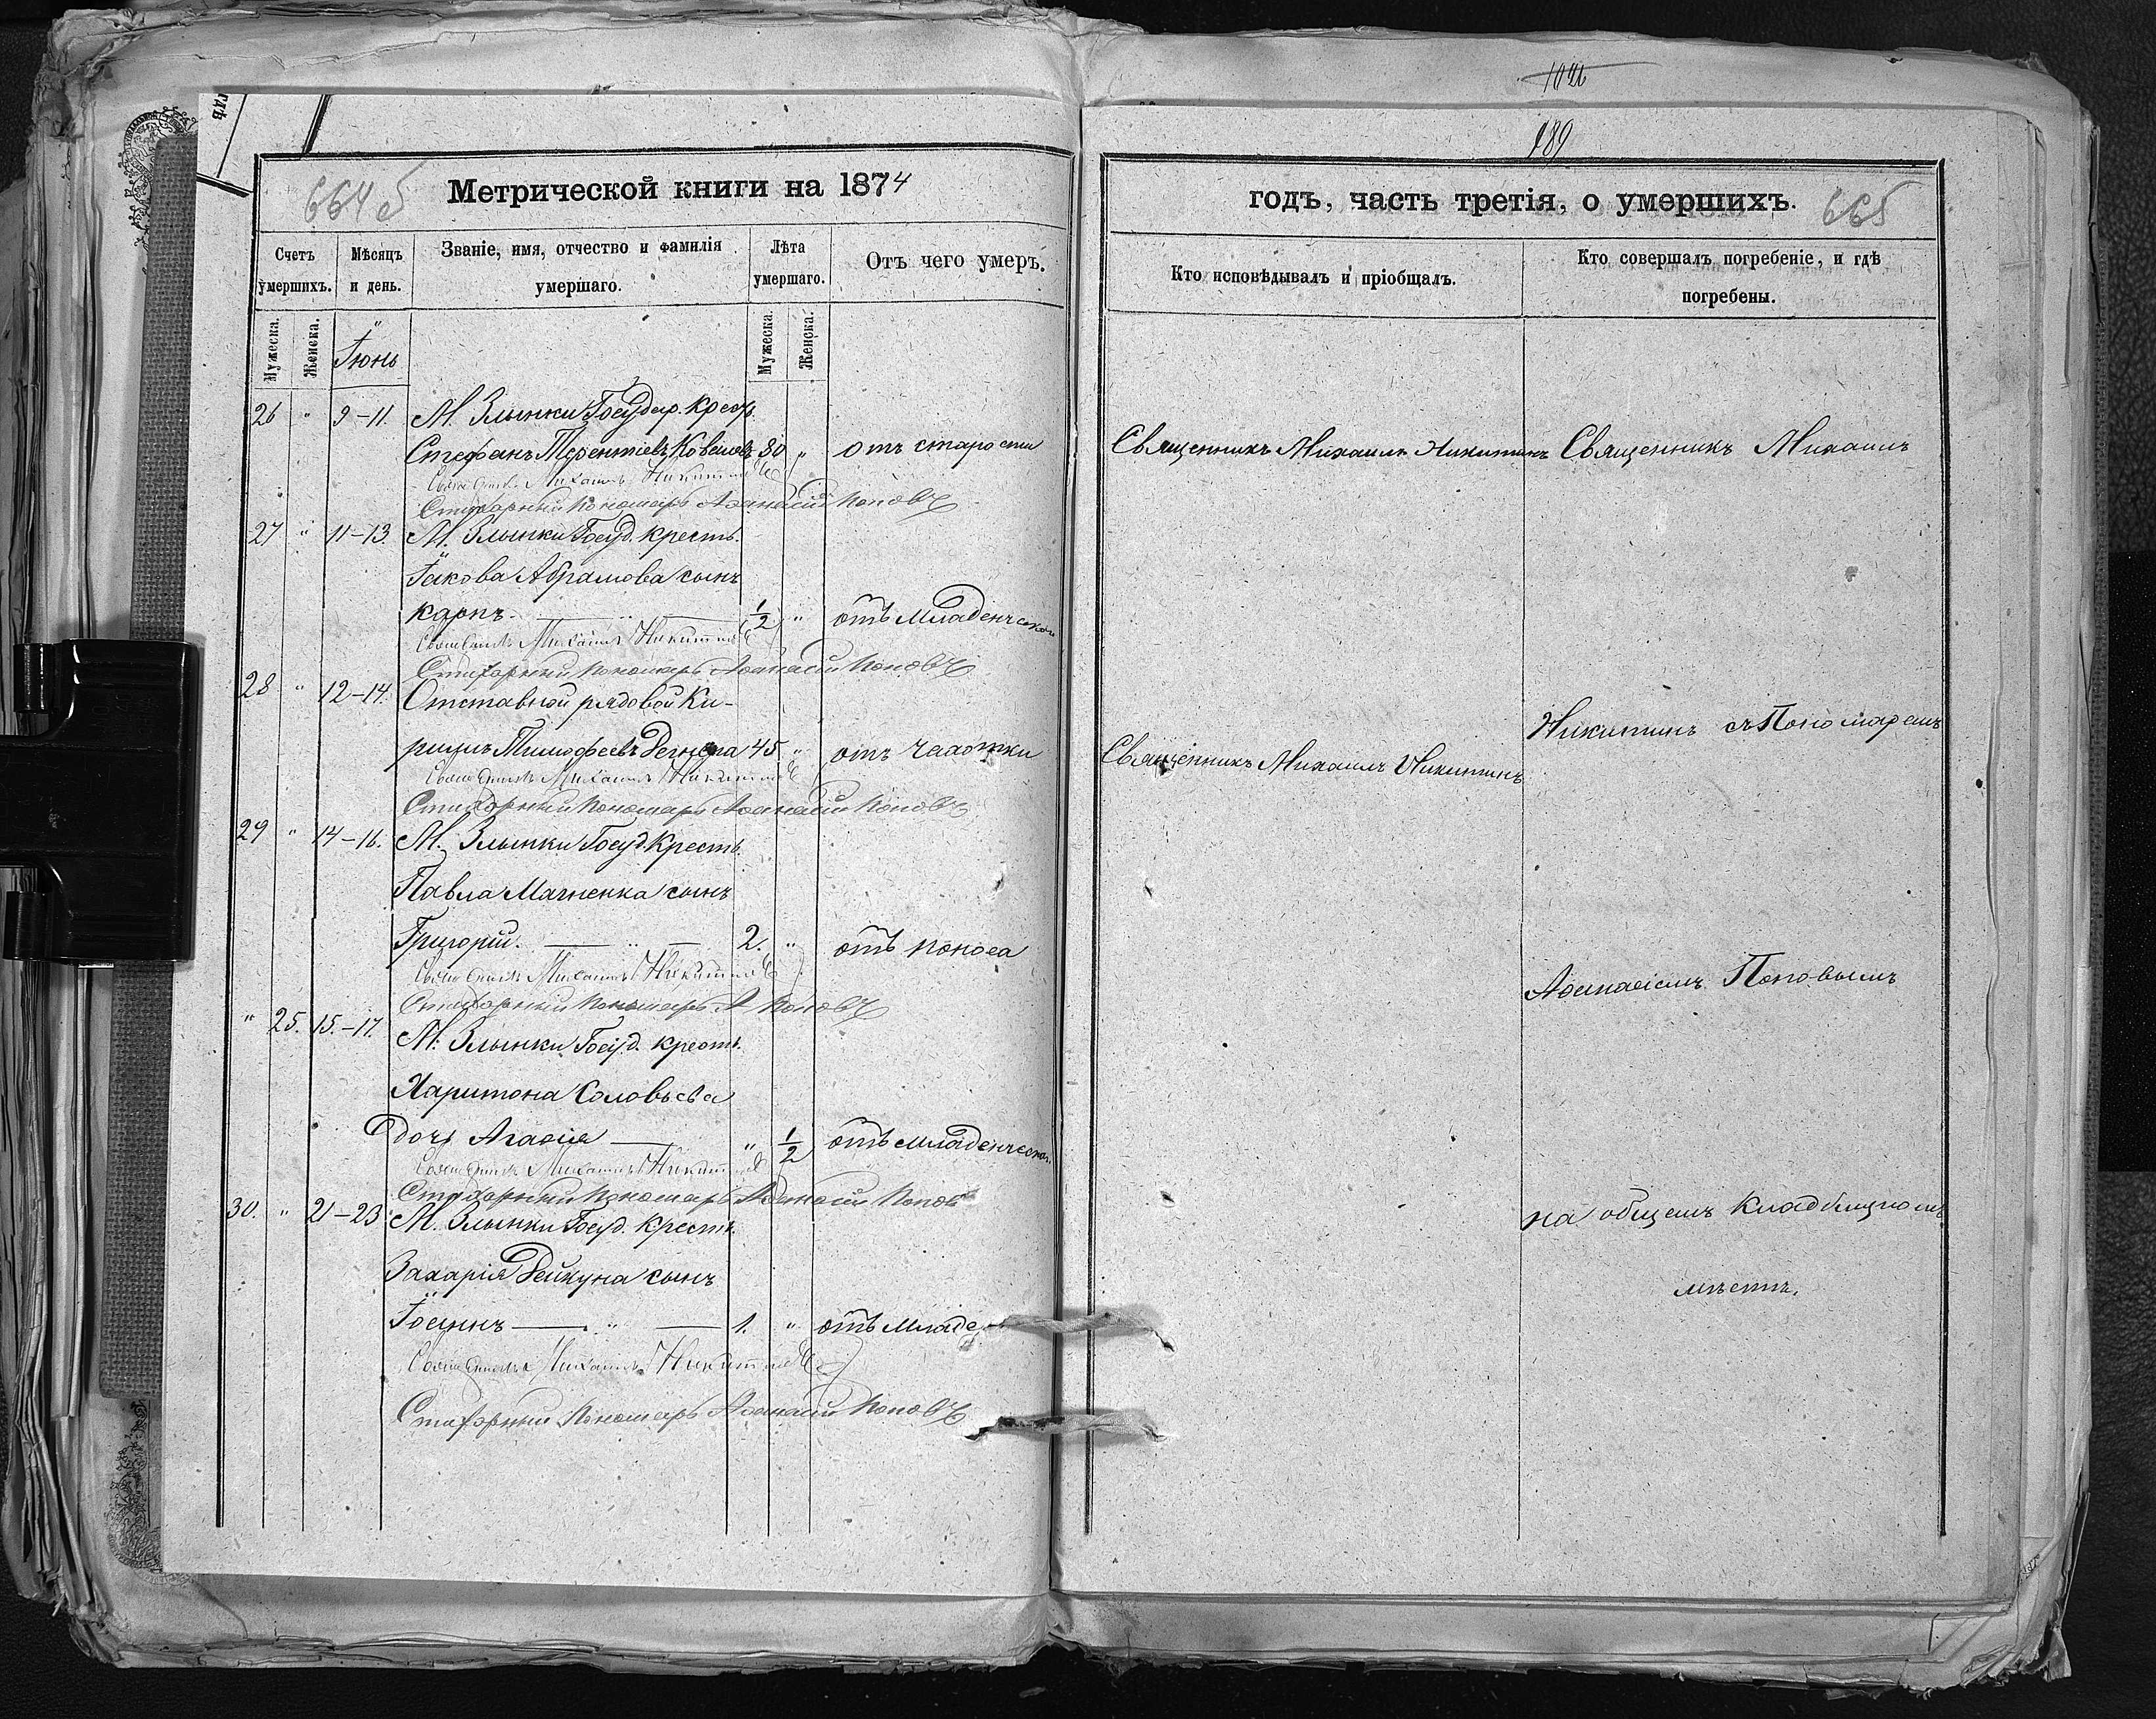 гдѣ
664 об
Метрической книги на 1874
Счетъ умершихъ.
Мѣсяцъ и день.
Званіе, имя, отчество и фамилія
умершаго.
Лѣта умершаго.
Отъ чего умеръ.
Мужеска. Женска.
Іюнь
Мужеска. Женска.
26 " 9-11. М. Злынки Государ. Крест.
Стефанъ Терентіевъ 80 " отъ старости
Священникъ Михаилъ Никитинъ
Стихарный Пономарь Аѳанасій Поповъ
27 " 11-13. М. Злынки Госуд. Крестъ.
Іакова Абрамова сынъ
Карпъ. — " — 1/2 " отъ младенческой
Священникъ Михаилъ Никитинъ
Стихарный Пономарь Аѳанасій Поповъ
28 " 12-14. Отставной рядовой Ки-
рилъ Тимофеевъ 45 " отъ чахотки
Священникъ Михаилъ Никитинъ
Стихарный Пономарь Аѳанасій Поповъ
29 " 14-16. М. Злынки Госуд. Крестъ.
Павла Магненка сынъ
Григорій. — " — 2. " отъ поноса
Священникъ Михаилъ Никитинъ
Стихарный Пономарь А Поповъ
" 25. 15.-17. М. Злынки Госуд. Крестъ.
Харитона Соловьева
дочь Агафія — " 1/2 отъ младенческой.
Священникъ Михаилъ Никитинъ
Стихарный Пономарь Аѳанасій Поповъ
30. " 21-23 М. Злынки Госуд. Крестъ.
Захарія Дейкуна сынъ
Іоаннъ — " — 1. " отъ младе
Священникъ Михаилъ Никитинъ
Стихарный Пономарь Аѳанасій Поповъ
1026
189
годъ, часть третія, о умершихъ.
665
Кто исповѣдывалъ и пріобщалъ.
Кто совершалъ погребеніе, и гдѣ
погребены.
Священникъ Михаилъ Никитинъ
Священникъ Михаилъ
Никитинъ съ Пономаремъ
Священникъ Михаилъ Никитинъ
Аѳанасіемъ Поповымъ
на общемъ Кладбищномъ
мѣстѣ.